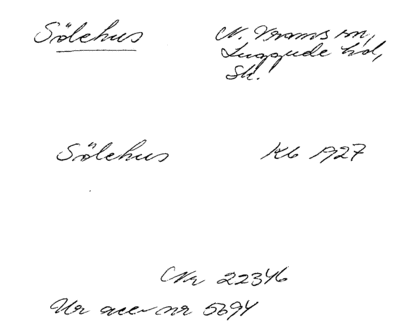 Sölehus
N. Vrams sn,
Luggude hd,
Sk.
Sölehus Kb 1927
Nr 22346
Ur acc nr 5694